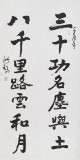 三十功名塵與土
八千里路雲和月